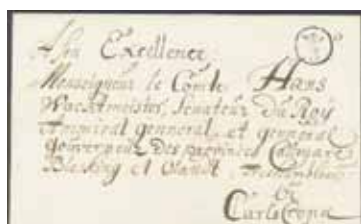 A Son Excellence
Monseigneur le Comte Hans
Wachtmeister, Senateur du Roy
Admiral genneral, et genneral
Gouverneur des provinces Calmare
Blecking et Olandt,
Carlscrona